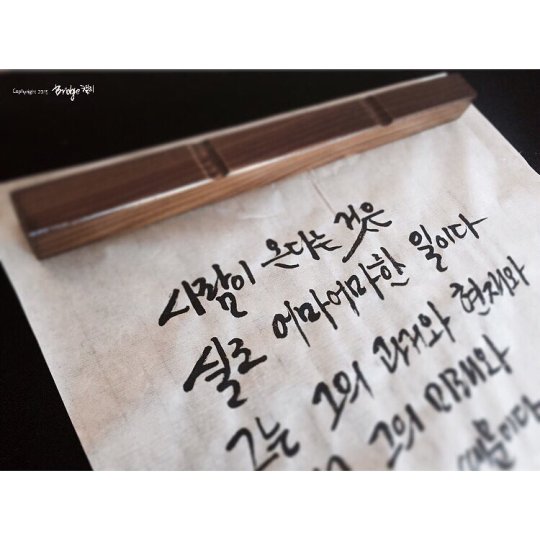 Copyright 2015 Bridge캘리
사람이 온다는 것은
실로 어마어마한 일이다
그는 그의 과거와 현재와
그의 미래와
때문이다